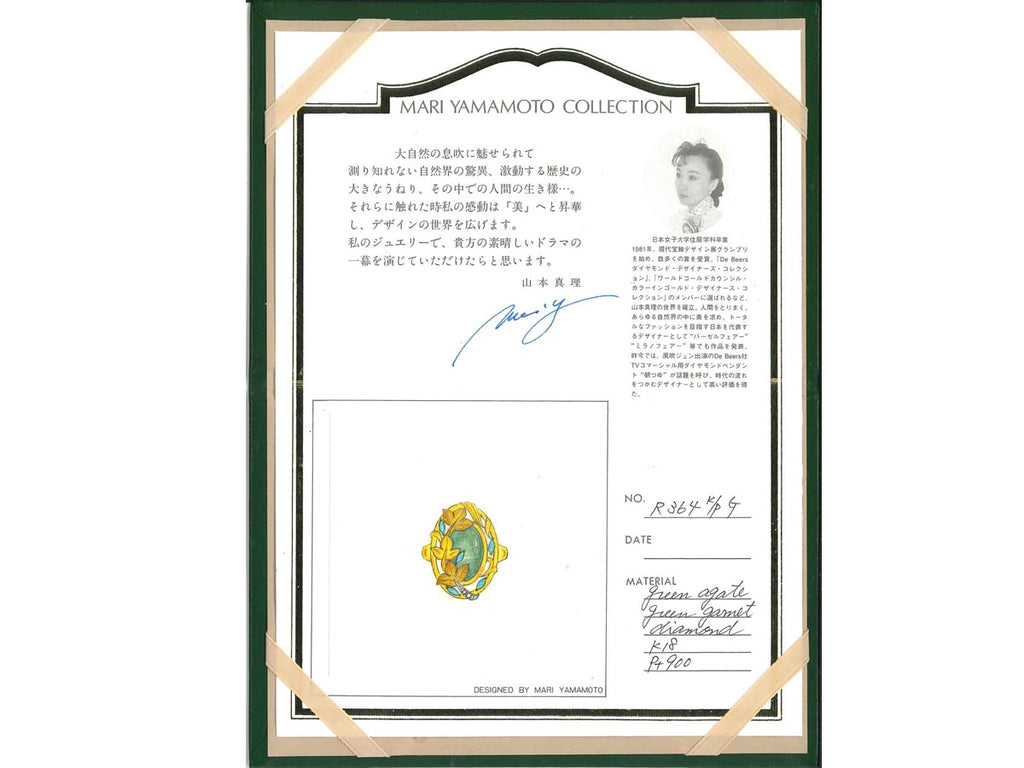 MARI YAMAMOTO COLLECTION
大自然の息吹に魅せられて
測り知れない自然界の驚異、激動する歴史の
大きなうねり、その中での人間の生き様…。
それらに触れた時私の感動は「美」へと昇華
し、デザインの世界を広げます。
私のジュエリーで、貴方の素晴しいドラマの
一幕を演じていただけたらと思います。
山本真理
日本女子大学住居学科卒業
1981年、現代宝飾デザイン展グランプリ
を始め、数多くの賞を受賞。「De Beers
ダイヤモンド・デザイナーズ・コレクシ
ョン」、「ワールドゴールドカウンシル・
カラーインゴールド・デザイナーズ・コ
レクション」のメンバーに選ばれるなど、
山本真理の世界を確立。人間をとりまく、
あらゆる自然界の中に美を求め、トータ
ルなファッションを目指す日本を代表す
るデザイナーとして“バーゼルフェアー”
“ミラノフェアー” 等でも作品を発表。
昨今では、風吹ジュン出演のDe Beers社
TVコマーシャル用ダイヤモンドペンダン
ト “朝つゆ” が話題を呼び、時代の流れ
をつかむデザイナーとして高い評価を得
た。
NO. R364 K/P G
DATE
MATERIAL
green agate
green garnet
diamond
K18
Pt900
DESIGNED BY MARI YAMAMOTO